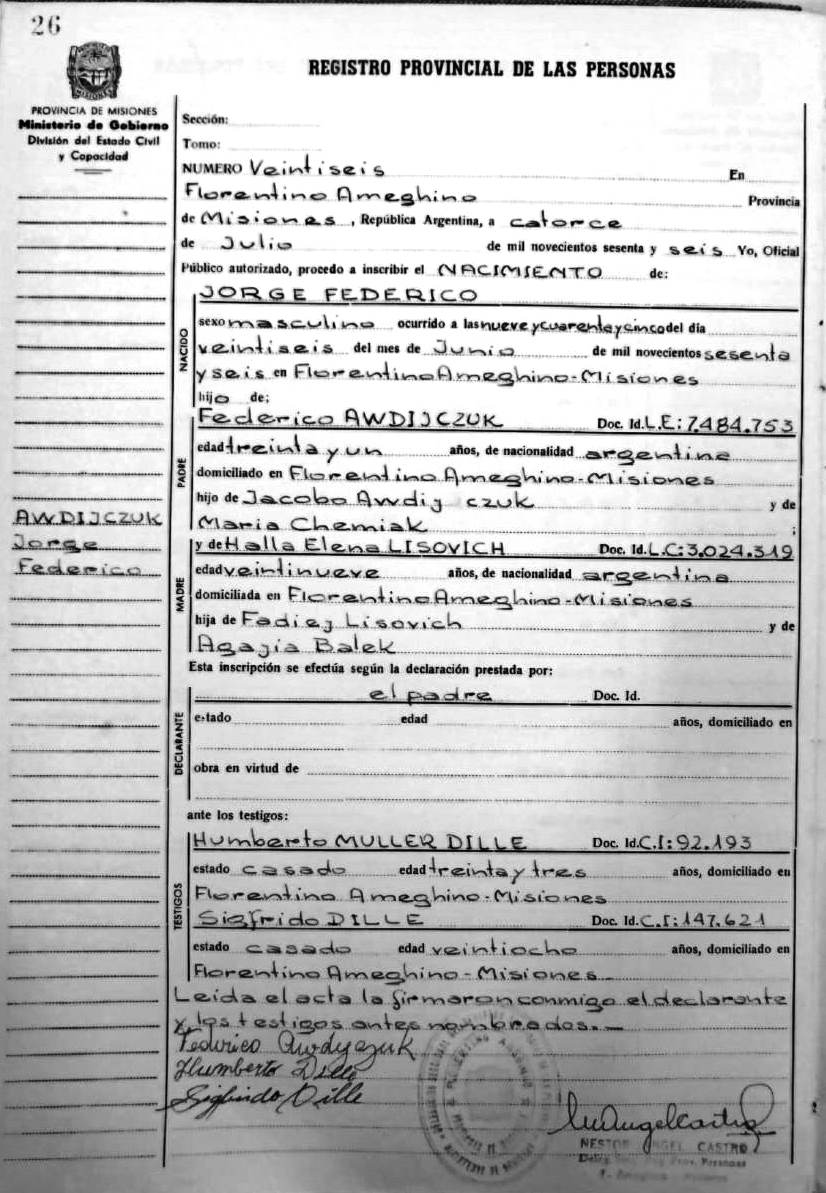 26
PROVINCIA DE MISIONES
Ministerio de Gobierno
División del Estado Civil
y Capacidad
AWDIJCZUK
Jorge
Federico
REGISTRO PROVINCIAL DE LAS PERSONAS
Sección:
Tomo:
NUMERO Veintiseis En
Florentino Ameghino Provincia
de Misiones, República Argentina, a catorce
de Julio de mil novecientos sesenta y seis Yo, Oficial
Público autorizado, procedo a inscribir el NACIMIENTO de:
NACIDO
JORGE FEDERICO
sexo masculino ocurrido a las nueve y cuarenta y cinco del día
veintiseis del mes de Junio de mil novecientos sesenta
y seis en Florentino Ameghino-Misiones
hijo de;
PADRE
Federico AWDIJCZUK Doc. Id. L.E: 7.484.753
edad treinta y un años, de nacionalidad argentina
domiciliado en Florentino Ameghino-Misiones
hijo de Jacobo Awdij czuk y de
Maria Chemiak ;
MADRE
y de Halla Elena LISOVICH Doc. Id. L.C: 3.024.319
edad veintinueve años, de nacionalidad argentina
domiciliada en Florentino Ameghino-Misiones
hija de Fadiej Lisovich y de
Agajia Balek
Esta inscripción se efectúa según la declaración prestada por:
DECLARANTE
el padre Doc. Id.
estado edad años, domiciliado en
obra en virtud de
ante los testigos:
TESTIGOS
Humberto MULLER DILLE Doc. Id. C.I: 92.193
estado casado edad treinta y tres años, domiciliado en
Florentino Ameghino-Misiones
Sigfrido DILLE Doc. Id. C.I: 147.621
estado casado edad veintiocho años, domiciliado en
Florentino Ameghino-Misiones
Leida el acta la firmaron conmigo el declarante
y los testigos antes nombrados.-
Federico Awdyczuk
Humberto Dille
Sigfrido Dille
NESTOR ANGEL CASTRO